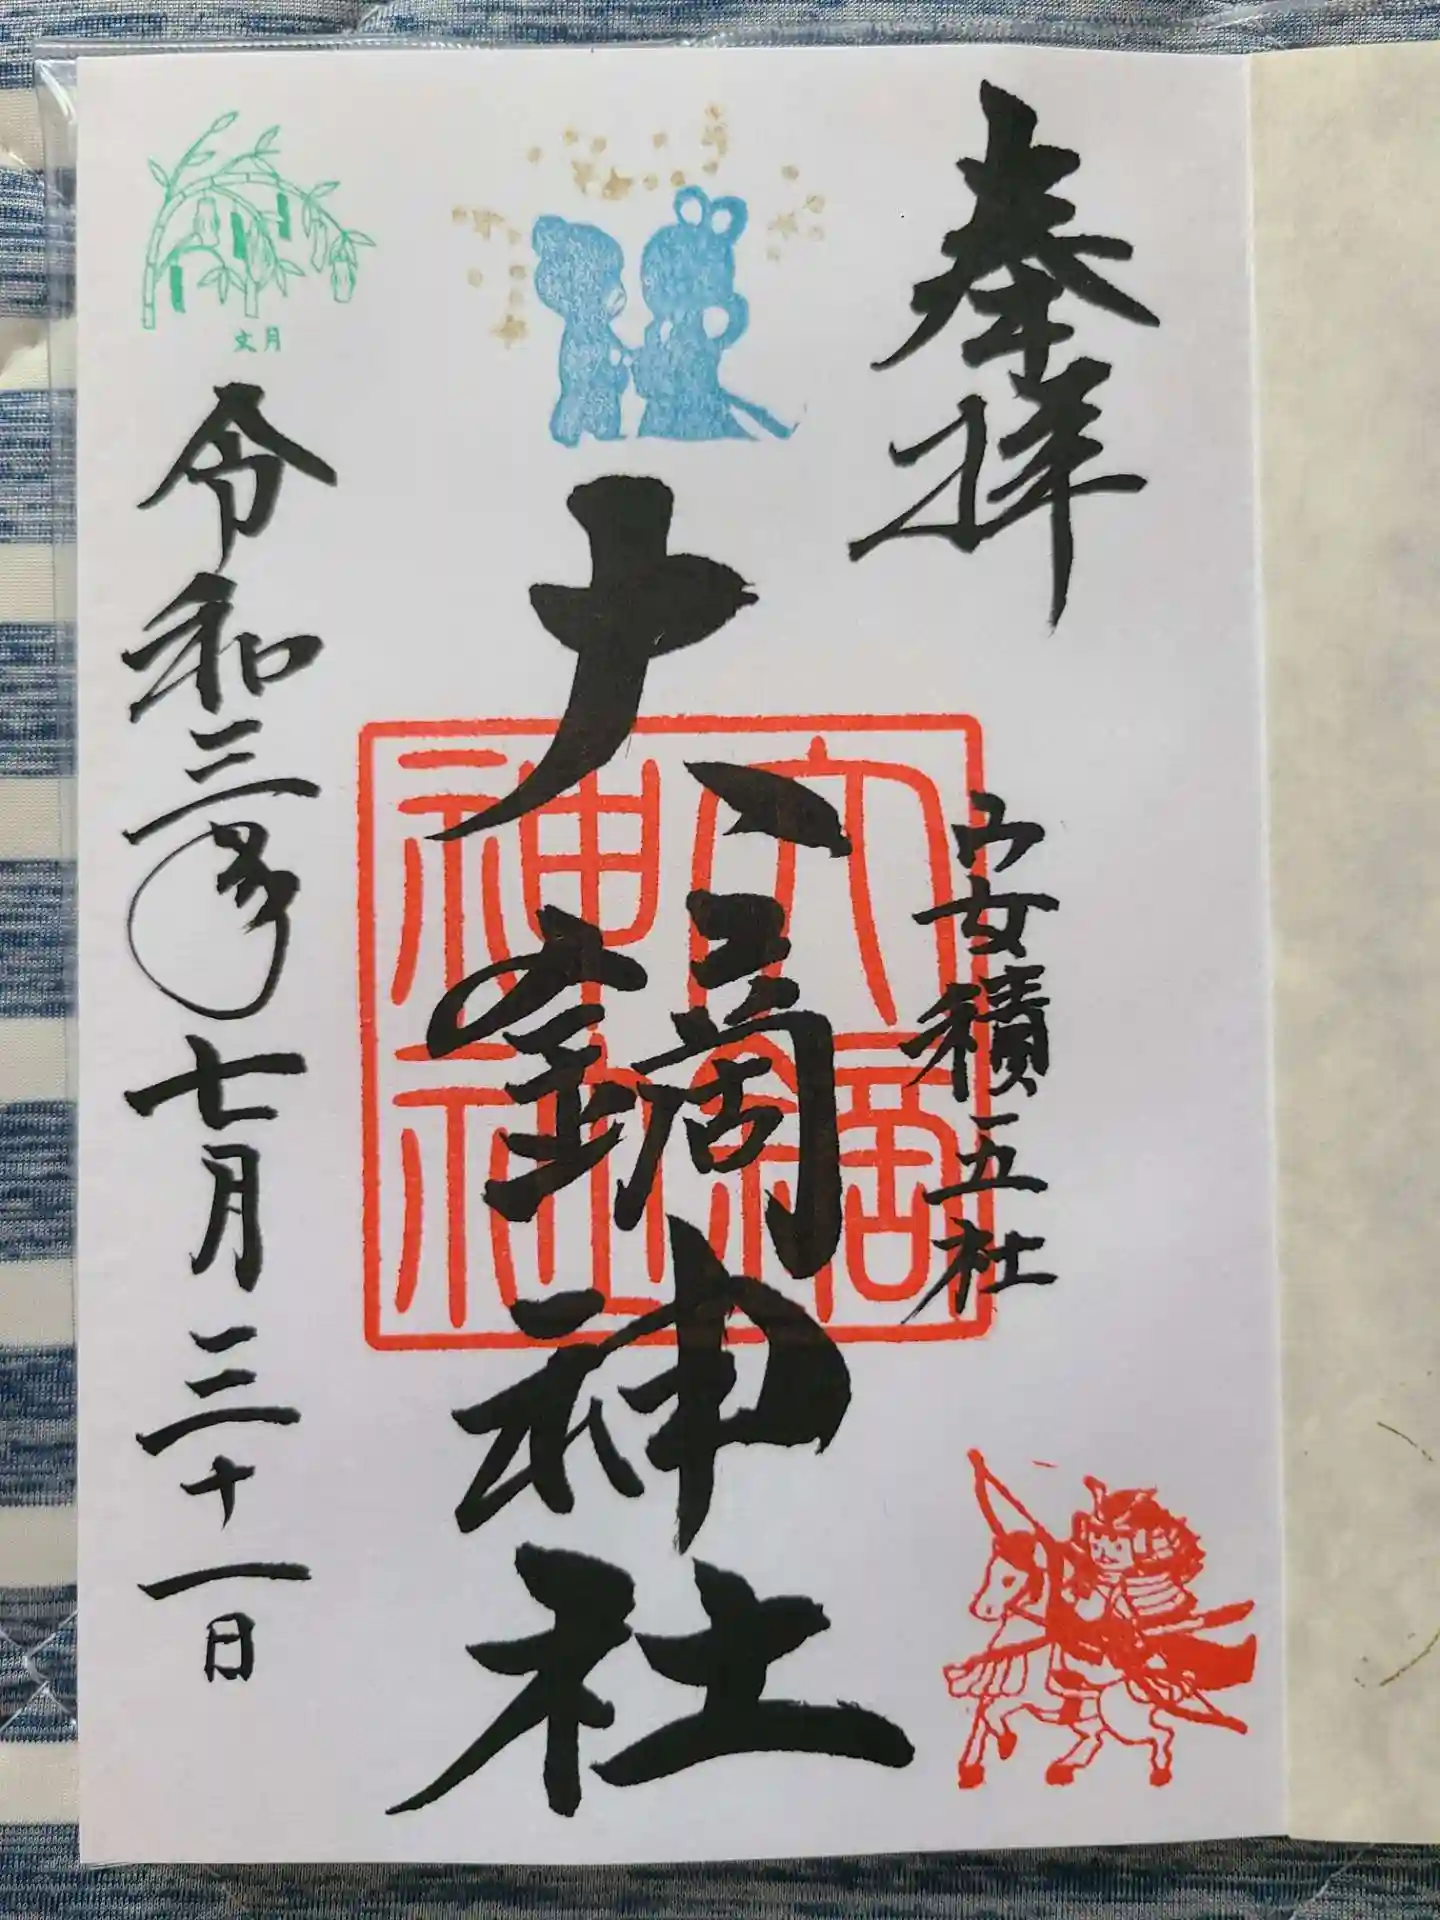 奉拝
安積五社
大鏑神社
大鏑
神社
文月
令和三年七月三十一日